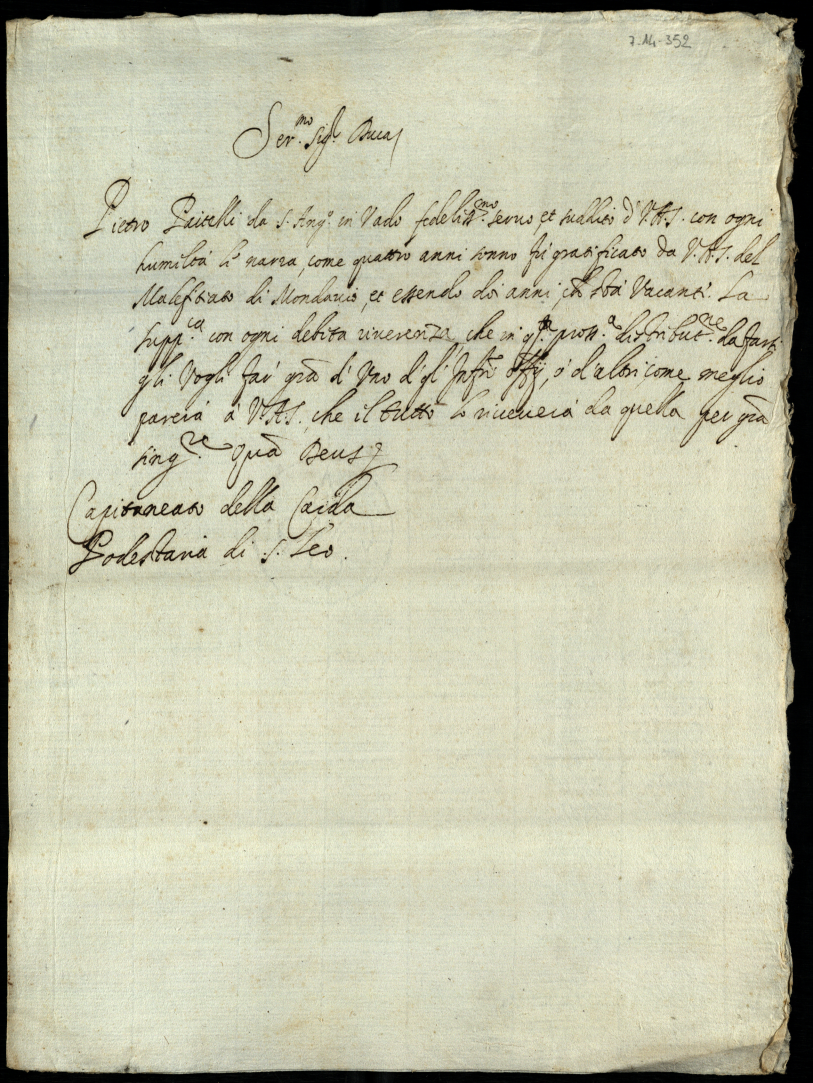 7.14.352
Ser.mo Sig.r Duca
Pietro Paitelli da S. Ang.o in Vado fedeliss.mo servo, et suddito d' V.A.S. con ogni
humiltà li narra, come quattro anni sonno fù gratificato da V.A.S. del
Malefitiato di Mondavio, et essendo doi anni ch' stà Vacanti. La
supp.ca con ogni debita riverenza, che in q.sta pross.a distribut.ne da farsi
gli Vogli far grã d' Uno d' gl' Infr.i Offij, ò d'altri come meglio
parerà à V.A.S. che il tutto lo riceverà da quella per grã
sing.re Quã Deus
Capitaneato della Carda
Podestaria di S. Leo.